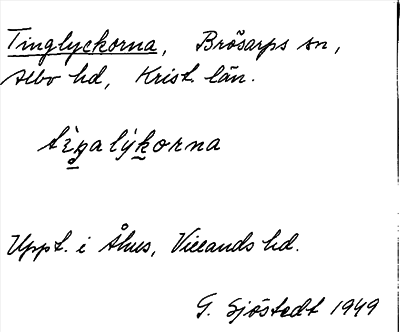 Tinglyckorna, Brösarps sn,
Albo hd, Krist. län.
tìŋalýkorna
Uppt. i Åhus, Villands hd.
G. Sjöstedt 1949